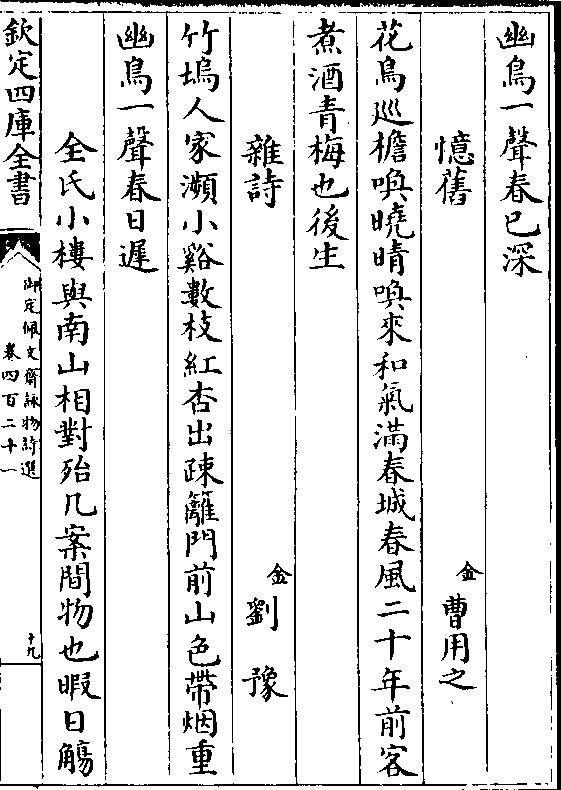 幽鳥一聲春已深
憶舊　金曹用之
花鳥巡檐喚曉晴喚來和氣滿春城春風二十年前客
煮酒青梅也後生
雜詩　金劉豫
竹塢人家瀕小谿數枝紅杏出疎籬門前山色帶烟重
幽鳥一聲春日遲
全氏小樓與南山相對殆几案間物也暇日觴
欽定四庫全書
御定佩文齋詠物詩選
卷四百二十一
十九